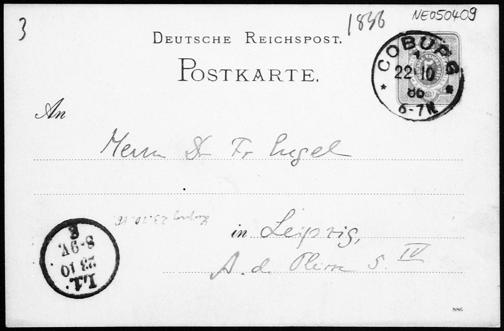 3
1886
NE050409
DEUTSCHE REICHSPOST.
POSTKARTE.
COBURG
1
22 10
86
6-7N
An
Herrn Dr Fr Engel
Leipzig 23.10.86.
in Leipzig,
A. d. Pleisse 5. IV
L.1.
23 10
8-9V.
886